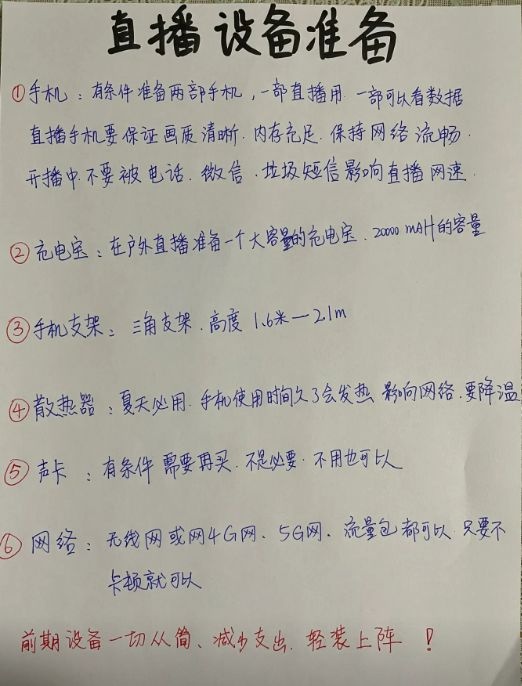 直播设备准备
①手机：有条件准备两部手机，一部直播用.一部可以看数据
直播手机要保证画质清晰.内存充足.保持网络流畅.
开播中.不要被电话.微信.垃圾短信影响直播网速.
②充电宝：在户外直播准备一个大容量的充电宝.20000mAH的容量
③手机支架：三角支架.高度1.6米—2.1m
④散热器：夏天必用.手机使用时间久了会发热 影响网络.要降温
⑤声卡：有条件 需要再买.不是必要.不用也可以
⑥网络：无线网或网4G网、5G网、流量包都可以.只要不
卡顿就可以
前期设备一切从简、减少支出.轻装上阵！